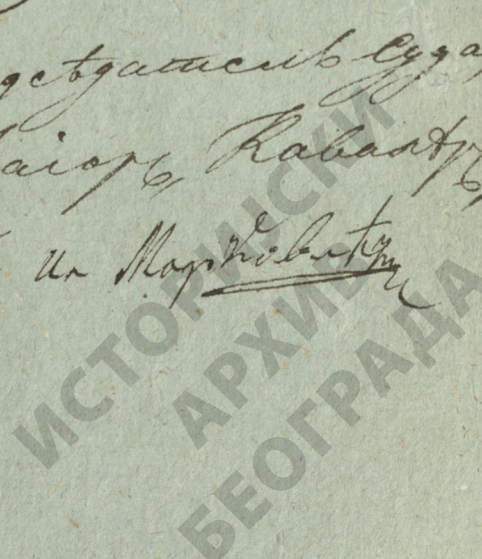 дсѣдатель Суда
аіоръ, Кавалѣръ
ИСТОРИЈСКИ
АРХИВ
БЕОГРАДА